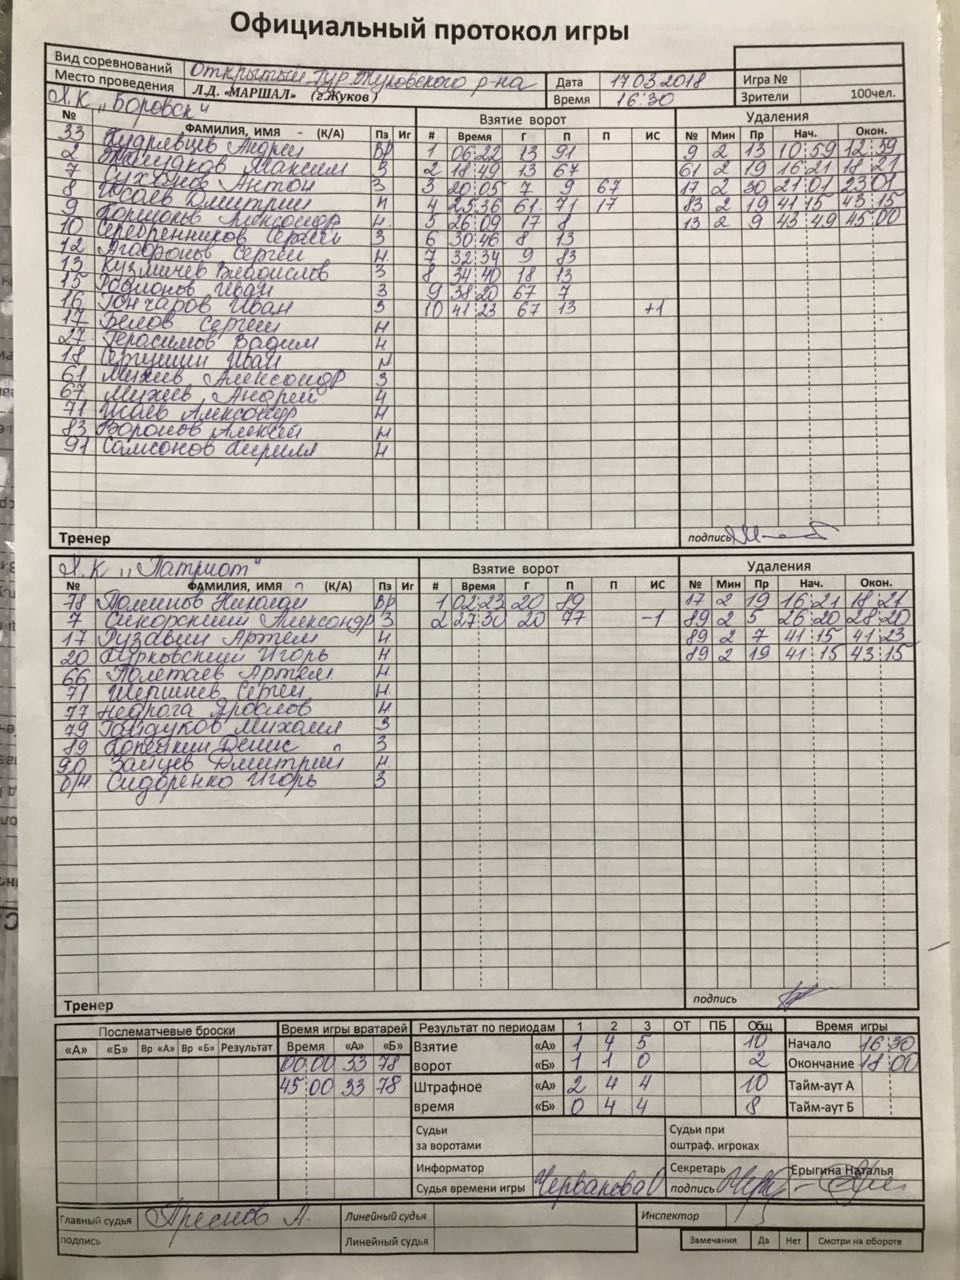 Официальный протокол игры
Вид соревнований Открытый Тур Жуковского р-на Дата 17 03 2018 Игра №
Место проведения Л.Д. «МАРШАЛ» (г.Жуков) Время 16:30 Зрители 100чел.
Х.К „Боровск"
Взятие ворот Удаления
№ ФАМИЛИЯ, ИМЯ (К/А) Пз Иг # Время Г П П ИС № Мин Пр Нач. Окон.
33 Кудрявцев Андрей Вр 1 06:22 13 91 9 2 13 10:59 12:59
2 Максим З 2 18:49 13 67 61 2 19 16:21 18:21
7 Суханов Антон З 3 20:05 7 9 67 17 2 30 21:01 23:01
8 Исаев Дмитрий Н 4 25:36 61 71 17 83 2 19 41:15 43:15
9 Александр Н 5 26:09 17 8 13 2 9 43:49 45:00
10 Серебренников Сергей З 6 30:46 8 13
12 Агафонов Сергей Н 7 32:34 9 83
13 Кузмичев З 8 34:40 18 13
15 Родионов Иван З 9 38:20 67 7
16 Гончаров Иван З 10 41:23 67 13 +1
17 Белов Сергей Н
27 Герасимов Вадим Н
18 Иван Н
61 Михеев Александр З
67 Михеев Андрей Н
71 Исаев Александр Н
83 Воронов Алексей Н
91 Самсонов Кирилл Н
Тренер подпись
Х.К „Патриот"
Взятие ворот Удаления
№ ФАМИЛИЯ, ИМЯ (К/А) Пз Иг # Время Г П П ИС № Мин Пр Нач. Окон.
78 Николай Вр 1 02:23 20 89 17 2 19 16:21 18:21
7 Сикорский Александр З 2 27:30 20 77 -1 89 2 5 26:20 28:20
17 Рузавин Артем Н 89 2 7 41:15 41:23
20 Игорь Н 89 2 19 41:15 43:15
66 Полетаев Артем Н
71 Шершнев Сергей Н
77 Недрога Ярослов Н
79 Гайдуков Михаил З
89 Денис З
90 Зайцев Дмитрий Н
б/н Сидоренко Игорь З
Тренер подпись
Послематчевые броски Время игры вратарей Результат по периодам 1 2 3 ОТ ПБ Общ Время игры
«А» «Б» Вр «А» Вр «Б» Результат Время «А» «Б» Взятие «А» 1 4 5 10 Начало 16:30
00:00 33 78 ворот «Б» 1 1 0 2 Окончание 18:00
45:00 33 78 Штрафное «А» 2 4 4 10 Тайм-аут А
время «Б» 0 4 4 8 Тайм-аут Б
Судьи за воротами Судьи при оштраф. игроках
Информатор Секретарь Ерыгина Наталья
Судья времени игры Черванова О подпись
Главный судья Преснов А. Линейный судья Инспектор
подпись Линейный судья Замечания Да Нет Смотри на обороте